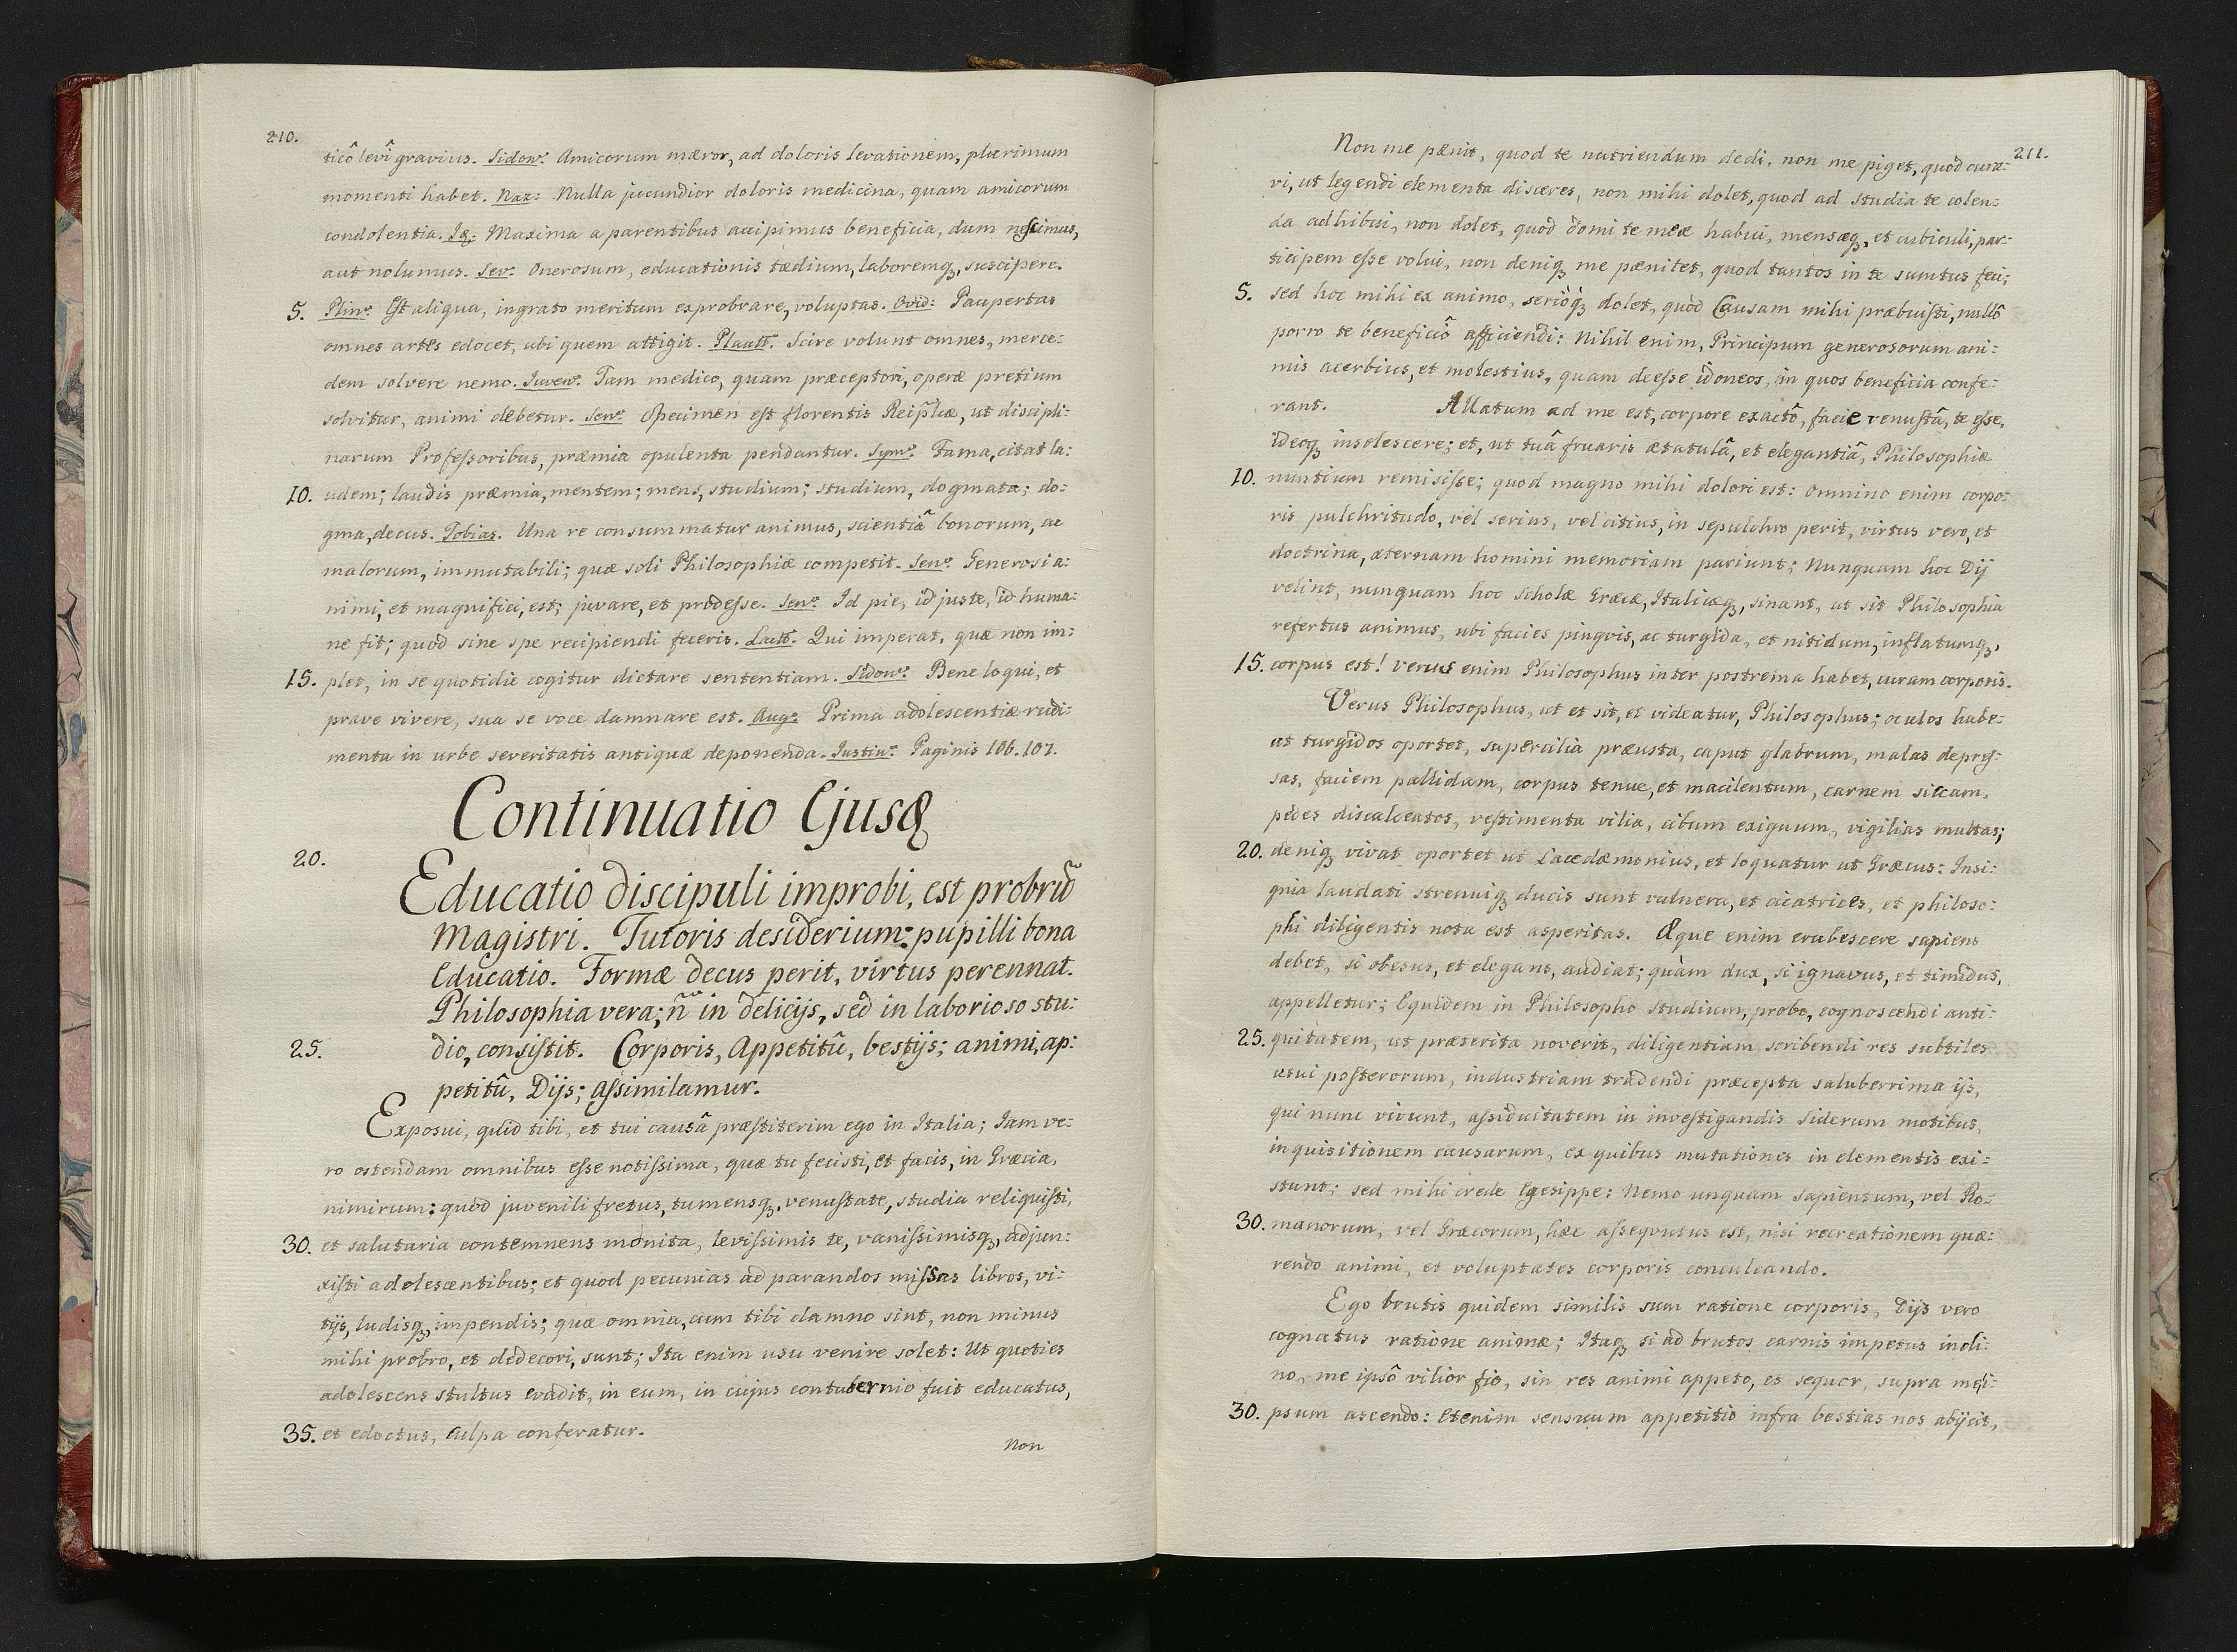 210.
ticô levî gravius. Sidon: Amicorum mæror, ad doloris levationem, plurimum
momenti habet. Naz: Nulla jucundior doloris medicina, quam amicorum
condolentia. Maxima a parentibus accipimus beneficia, dum nescimus,
aut nolumus. Sen: Onerosum, educationis tædium, laboremq, suscipere.
5. Plin: Est aliqua, ingrato meritum exprobrare, voluptas. Ovid: Paupertas
omnes artes edocet, ubi quem attigit. Plautt: Scire volunt omnes, merce:
dem solvere nemo. Juven: Tam medico, quam præceptori, operæ pretium
solvitur, animi debetur. Sen: Specimen est florentis Reip̃licæ, ut discipli:
narum Professoribus, præmia opulenta pendantur. Sym: Fama, citat la:
10. udem; laudis præmia, mentem; mens, studium; studium, dogmata; do:
gma, decus. Tobias. Una re consummatur animus, scientiâ bonorum, ac
malorum, immutabili; quæ soli Philosophiæ competit. Sen: Generosi a:
nimi, et magnifici, est; juvare, et prodesse. Sen: Id pie, id juste, id huma:
ne fit; quod sine spe recipiendi feceris. Lactt: Qui imperat, quæ non im:
15. plet, in se quotidie cogitur dictare sententiam. Sidon: Bene loqui, et
prave vivere, sua se voce damnare est. Aug: Prima adolescentiæ rudi:
menta in urbe severitatis antiquæ deponenda. Justin: Paginis 106. 107.
Continuatio Ejusd
20.
Educatio discipuli improbi, est probrũ
Magistri. Tutoris desiderium: pupilli bona
Educatio. Formæ decus perit, virtus perennat.
Philosophia vera; ñ in delicijs, sed in laborioso stu:
25. dio, consistit. Corporis, Appetitû, bestijs; animi, ap:
petitû, Dijs; assimilamur.
Exposui, quid tibi, et tui causâ præstiterim ego in Italia; Jam ve:
ro ostendam omnibus esse notissima, quæ tu fecisti, et facis, in Græcia,
nimirum: quod juvenili fretus, tumensq, venustate, studia reliquisti,
30. et salutaria contemnens monita, levissimis te, vanissimisq, adjun:
xisti adolescentibus; et quod pecunias ad parandos missas libros, vi:
tijs, ludisq, impendis; quæ omnia, cum tibi damno sint, non minus
mihi probro, et dedecori, sunt; Ita enim usu venire solet: Ut quoties
adolescens stultus evadit, in eum, in cujus contubernio fuit educatus,
35. et edoctus, culpa conferatur.
Non
211.
Non me pænit, quod te nutriendum dedi, non me piget, quod cura:
vi, ut legendi elementa disceres, non mihi dolet, quod ad studia te colen:
da adhibui, non dolet, quod domi te meæ habui, mensæq, et cubiculi, par:
ticipem esse volui, non deniq me pænitet, quod tantos in te sumtus feci;
5. sed hoc mihi ex animo, serioq dolet, quòd Causam mihi præbuisti, nullô
porro te beneficiô afficiendi: Nihil enim, Principum generosorum ani:
mis acerbius, et molestius, quam deesse idoneos, in quos beneficia confe:
rant. Allatum ad me est, corpore exactô, facie venustâ, te esse,
ideoq insolescere; et, ut tuâ fruaris ætatulâ, et elegantiâ, Philosophiæ
10. nuntium remisisse; quod magno mihi dolori est: omnino enim corpo:
ris pulchritudo, vel serius, vel citius, in sepulchro perit, virtus vero, et
doctrina, æternam homini memoriam pariunt; Nunquam hoc Dij
velint, nunquam hoc scholæ Græcæ, Italicæq, sinant, ut sit Philosophia
refertus animus, ubi facies pingvis, ac turgida, et nitidum, inflatumq,
15. corpus est! verus enim Philosophus inter postrema habet, curam corporis.
Verus Philosophus, ut et sit, et videatur, Philosophus; oculos habe:
at turgidos oportet, supercilia præusta, caput glabrum, malas depres:
sas, faciem pallidam, corpus tenue, et macilentum, carnem siccam,
pedes discalceatos, vestimenta vilia, cibum exiguum, vigilias multas;
20. deniq vivat oportet ut Lacedæmonius, et loquatur ut Græcus: Insi:
gnia laudati strenuiq ducis sunt vulnera, et cicatrices, et philoso:
phi diligentis nota est asperitas. Æque enim erubescere sapiens
debet, si obesus, et elegans, audiat; quàm dux, si ignavus, et timidus,
appelletur; Equidem in Philosopho studium, probo, cognoscendi anti:
25. quitatem, ut præterita noverit, diligentiam scribendi res subtiles
usui posterorum, industriam tradendi præcepta saluberrima ijs,
qui nunc vivunt, assiduitatem in investigandis siderum motibus,
inquisitionem causarum, ex quibus mutationes in elementis exi:
stunt; sed mihi crede Egesippe: Nemo unquam sapientum, vel Ro:
30. manorum, vel Græcorum, hæc assequutus est, nisi recreationem quæ:
rendo animi, et voluptates corporis conculcando.
Ego brutis quidem similis sum ratione corporis, Dijs vero
cognatus ratione animæ; Itaq si ad brutos carnis impetus incli:
no, me ipsô vilior fio, sin res animi appeto, et sequor, supra mei:
30. psum ascendo: Etenim sensuum appetitio infra bestias nos abijcit,